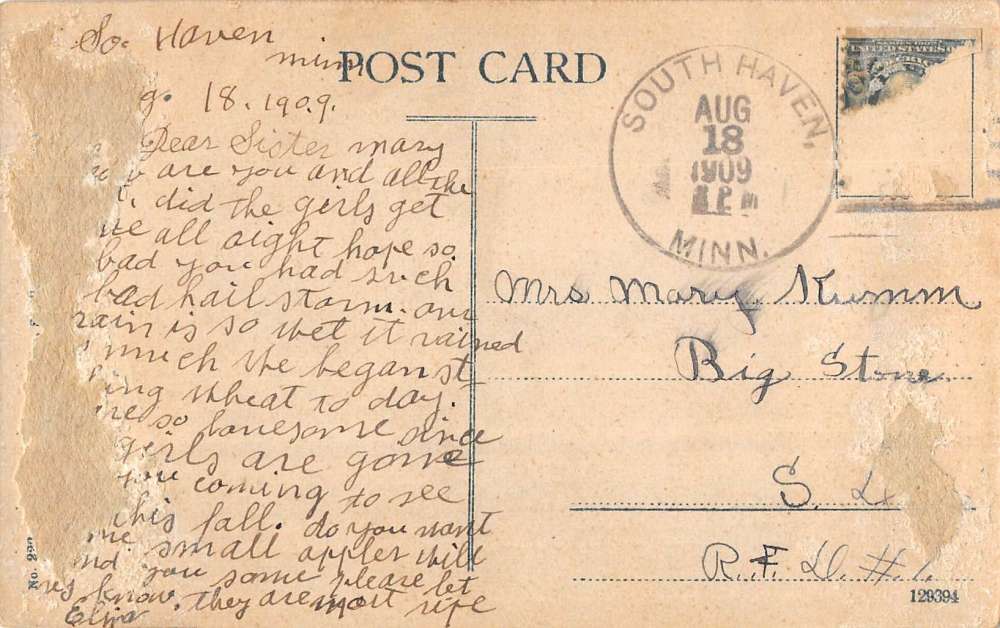 So. Haven
minn
POST CARD
g. 18. 1909.
Dear Sister mary
are you and all the
did the girls get
all aight hope so.
bad you had such
bad hail storm. our
rain is so wet it rained
much the began st
ing wheat to day.
so lonesome since
girls are gone
you coming to see
this fall. do you want
me small apples will
nd you some please let
us know. they are most ripe
SOUTH HAVEN,
AUG
18
1909
MINN.
UNITED STATES O
Mrs Mary Kumm
Big Stone
S.
R. F. D. # 1.
129394